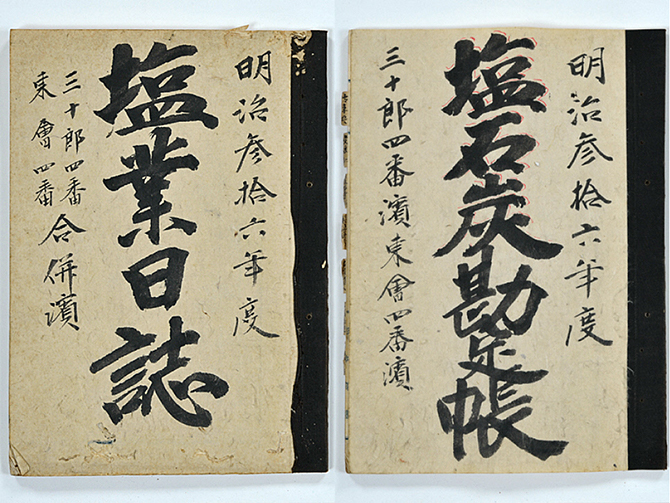 明治参拾六年度
塩業日誌
三十郎四番
東會四番
合併濱
明治参拾六年度
塩石炭勘定帳
三十郎四番濱東會四番濱